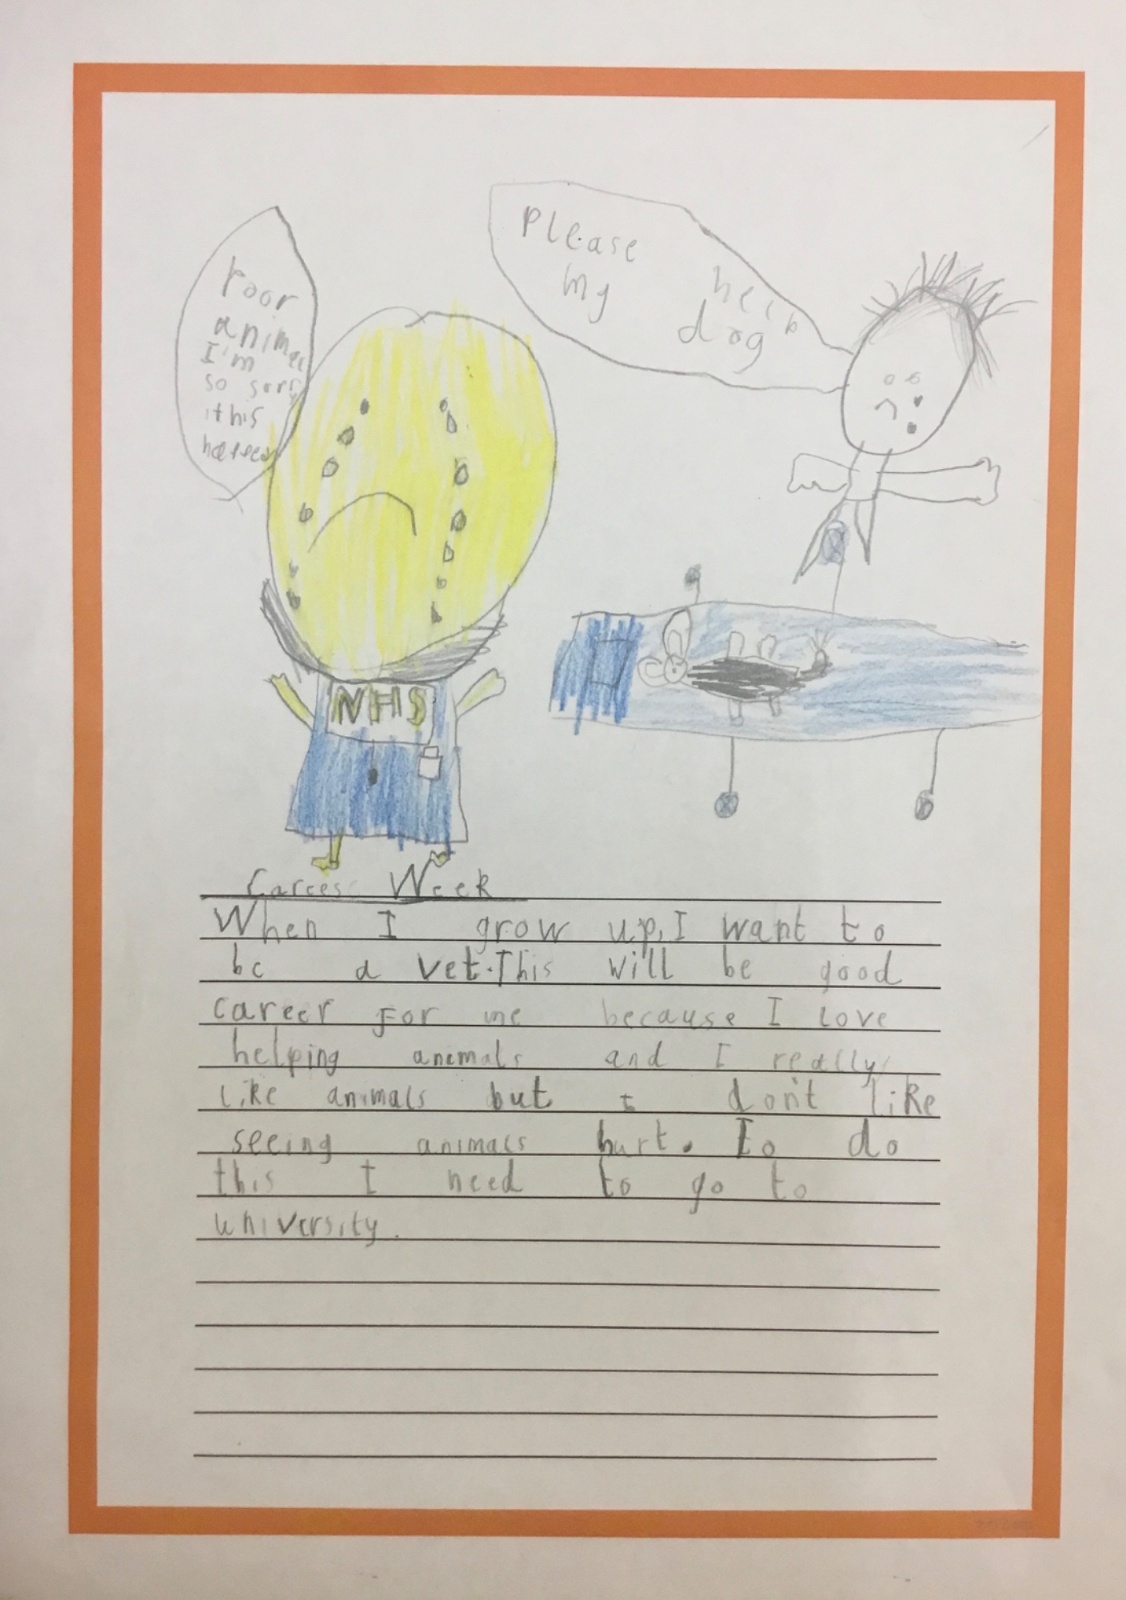 Poor
animal
I'm
so sorry
this
Please help
my dog
NHS
Career Week
When I grow up, I want to
be a vet. This will be good
career for me because I love
helping animals and I really
like animals but I don't like
seeing animals hurt. To do
this I need to go to
university.